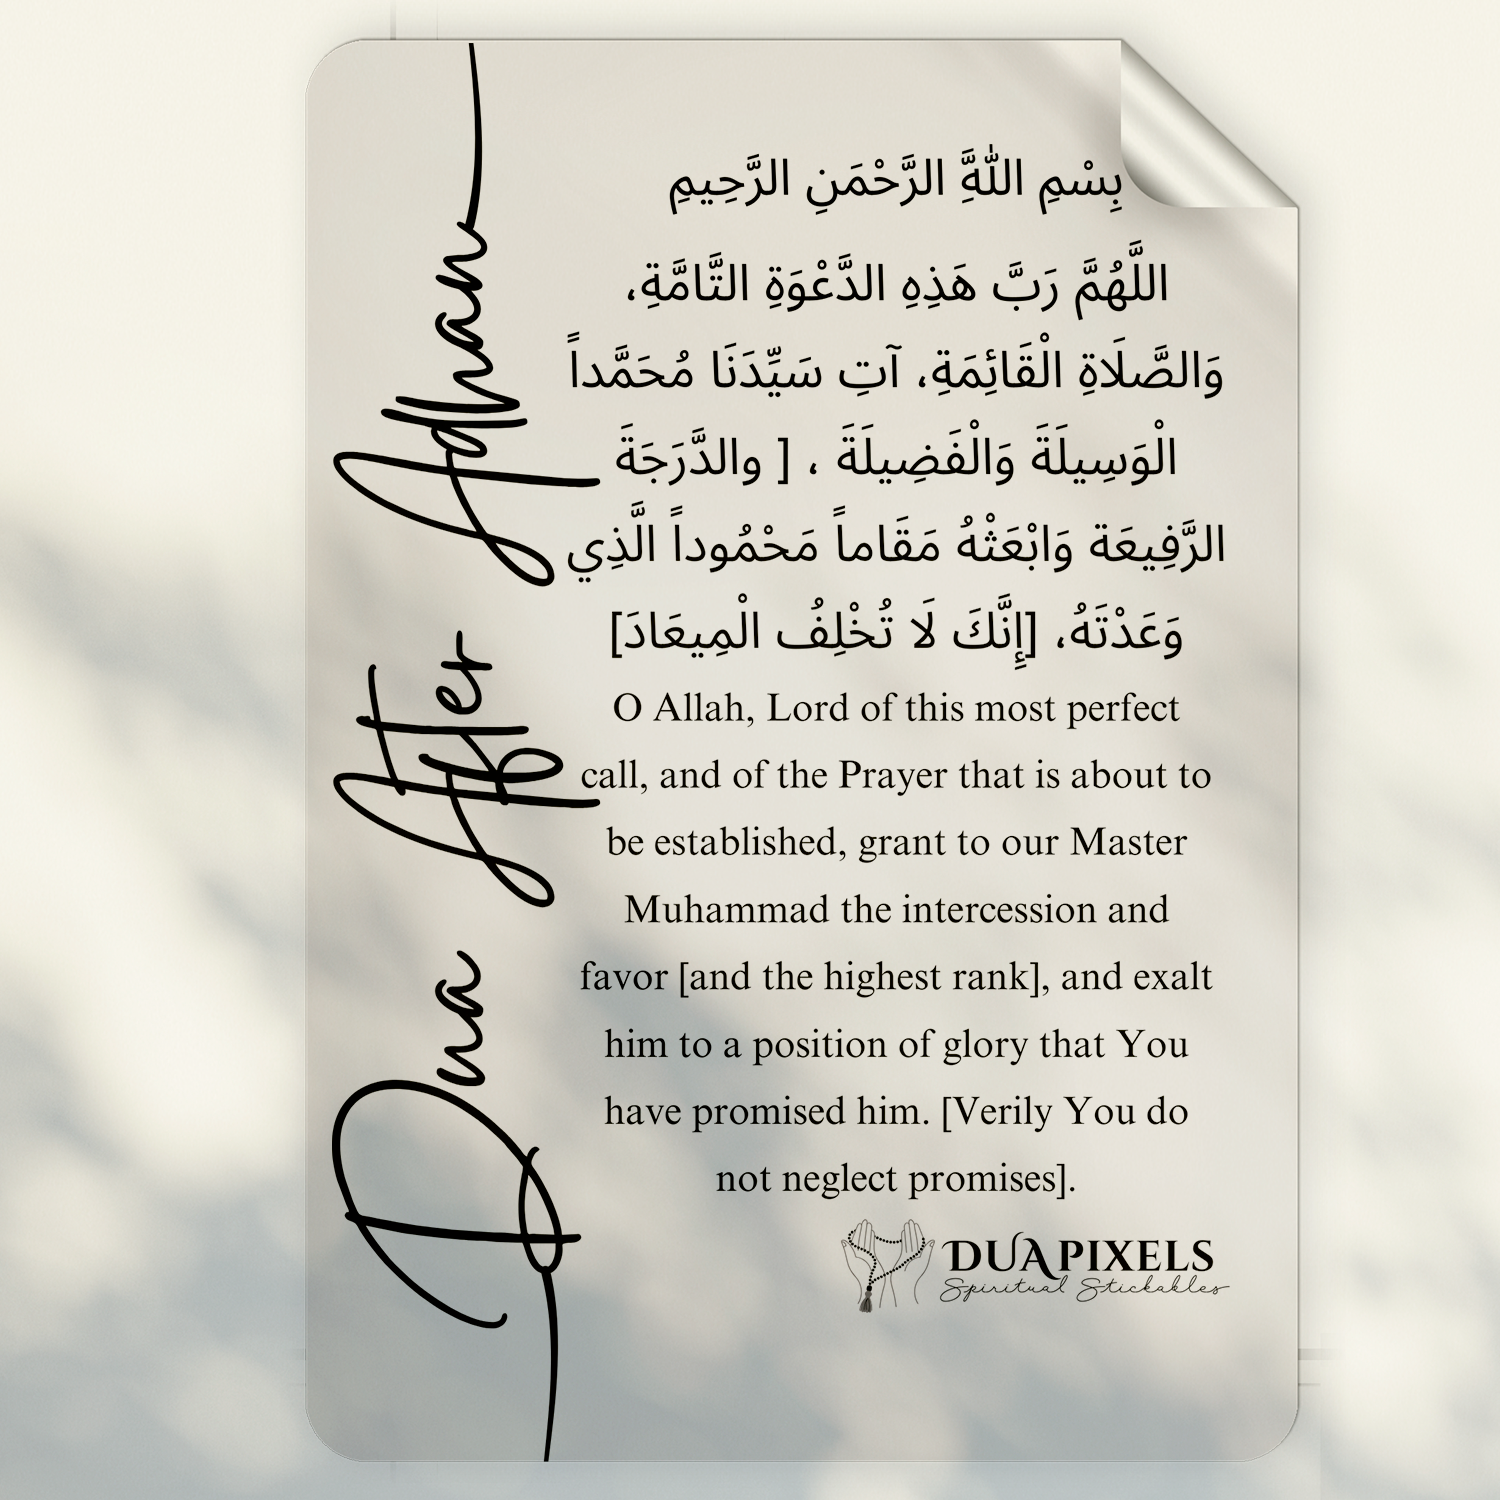 Dua After Adhan
بِسْمِ اللَّهِ الرَّحْمَنِ الرَّحِيمِ
اللَّهُمَّ رَبَّ هَذِهِ الدَّعْوَةِ التَّامَّةِ،
وَالصَّلَاةِ الْقَائِمَةِ، آتِ سَيِّدَنَا مُحَمَّداً
الْوَسِيلَةَ وَالْفَضِيلَةَ ، [ والدَّرَجَةَ
الرَّفِيعَة وَابْعَثْهُ مَقَاماً مَحْمُوداً الَّذِي
وَعَدْتَهُ، [إِنَّكَ لَا تُخْلِفُ الْمِيعَادَ]
O Allah, Lord of this most perfect
call, and of the Prayer that is about to
be established, grant to our Master
Muhammad the intercession and
favor [and the highest rank], and exalt
him to a position of glory that You
have promised him. [Verily You do
not neglect promises].
DUA PIXELS
Spiritual Stickables